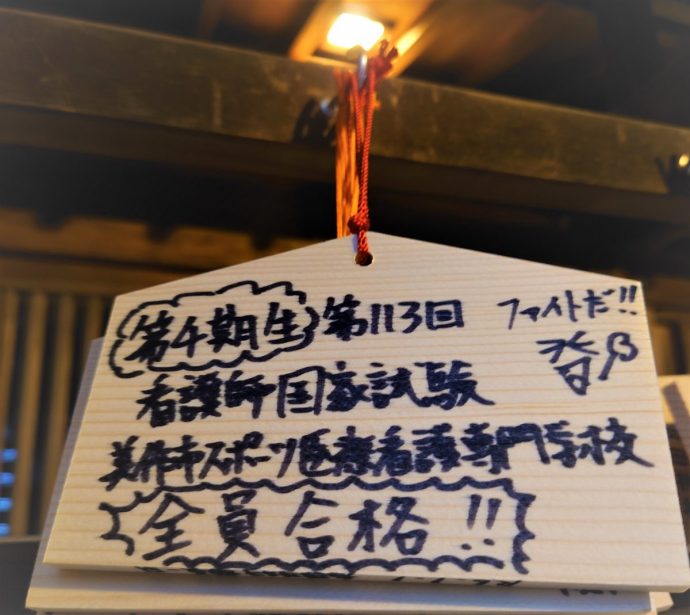 第4期生 第113回
ファイトだ!!
看護師国家試験
美作市スポーツ医療看護専門学校
全員合格!!